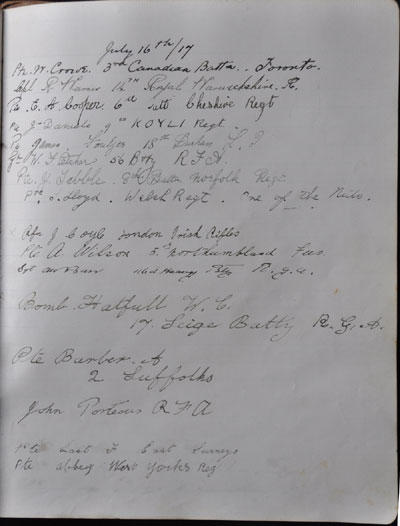 July 16th/17
Pte. W. Crowe. 3rd Canadian Battn. Toronto.
R 12th Royal Warwickshire. R.
Pte. E. A. Cooper 6th Cheshire Regt
Pte J. Daniels 9th KOYLI Regt.
Pte James 18th
56 Bty R F A.
Pte. J. 8th Battn Norfolk Regt.
Pte. o. Lloyd. Welch Regt. One of the Nuts.
Rfn J Coyle London Irish Rifles
Pte A Wilson 5th Northumberland Fus.
Heavy Bty R.G.A.
Bomb. Hatfull W. C.
17. Siege Batty R. G. A.
Pte Barber. A
2 Suffolks
John Porteous R F A
Pte Last F East Surreys
Pte Abbey West Yorks Reg